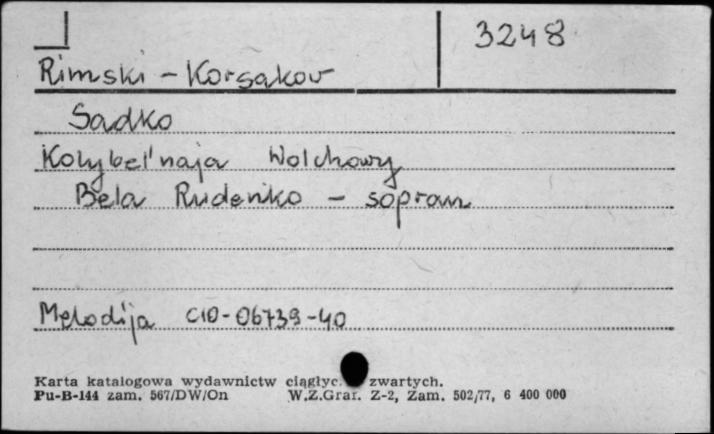 3248
Rimski - Korsakov
Sadko
Kolybel'naja Wolchowy
Bela Rudenko - sopran
Melodija C10-06739-40
Karta katalogowa wydawnictw ciągłyc zwartych.
Pu-B-144 zam. 567/DW/On W.Z.Graf. Z-2, Zam. 502/77, 6 400 000